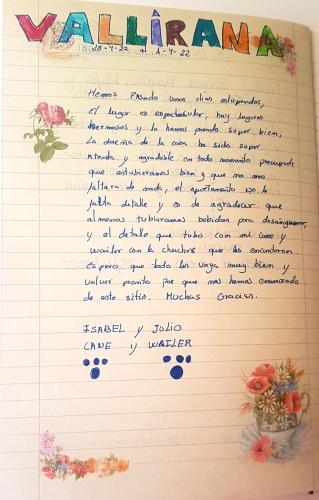 VALLIRANA
28-7-22 a 1-8-22
Hemos Pasado unos días estupendos,
El lugar es espectacular, hay lugares
hermosos y lo hemos pasado super bien,
La dueña de la casa ha sido super
atenta y agradable en todo momento preocupada
que estubieramos bien y que no nos
faltara de nada, el apartamento no le
falta detalle y es de agradecer que
al menos tubieramos bebidas para desayunar,
y el detalle que tubo con mi cane y
wailer con la chuches que les encantaron.
Espero que todo les vaya muy bien y
volver pronto por que nos hemos enamorado
de este sitio. Muchas Gracias.
ISABEL y JULIO
CANE y WAILER